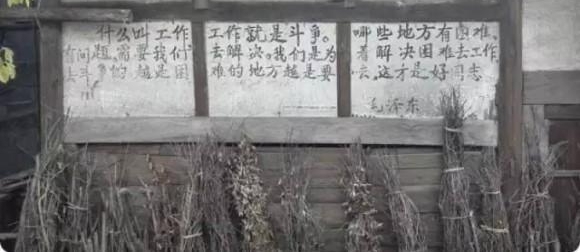 什么叫工作 工作就是斗争。哪些地方有困难、
有问题，需要我们去解决。我们是为着解决困难去工作、
斗 的 越是困难的地方越是要去。这才是好同志
毛泽东